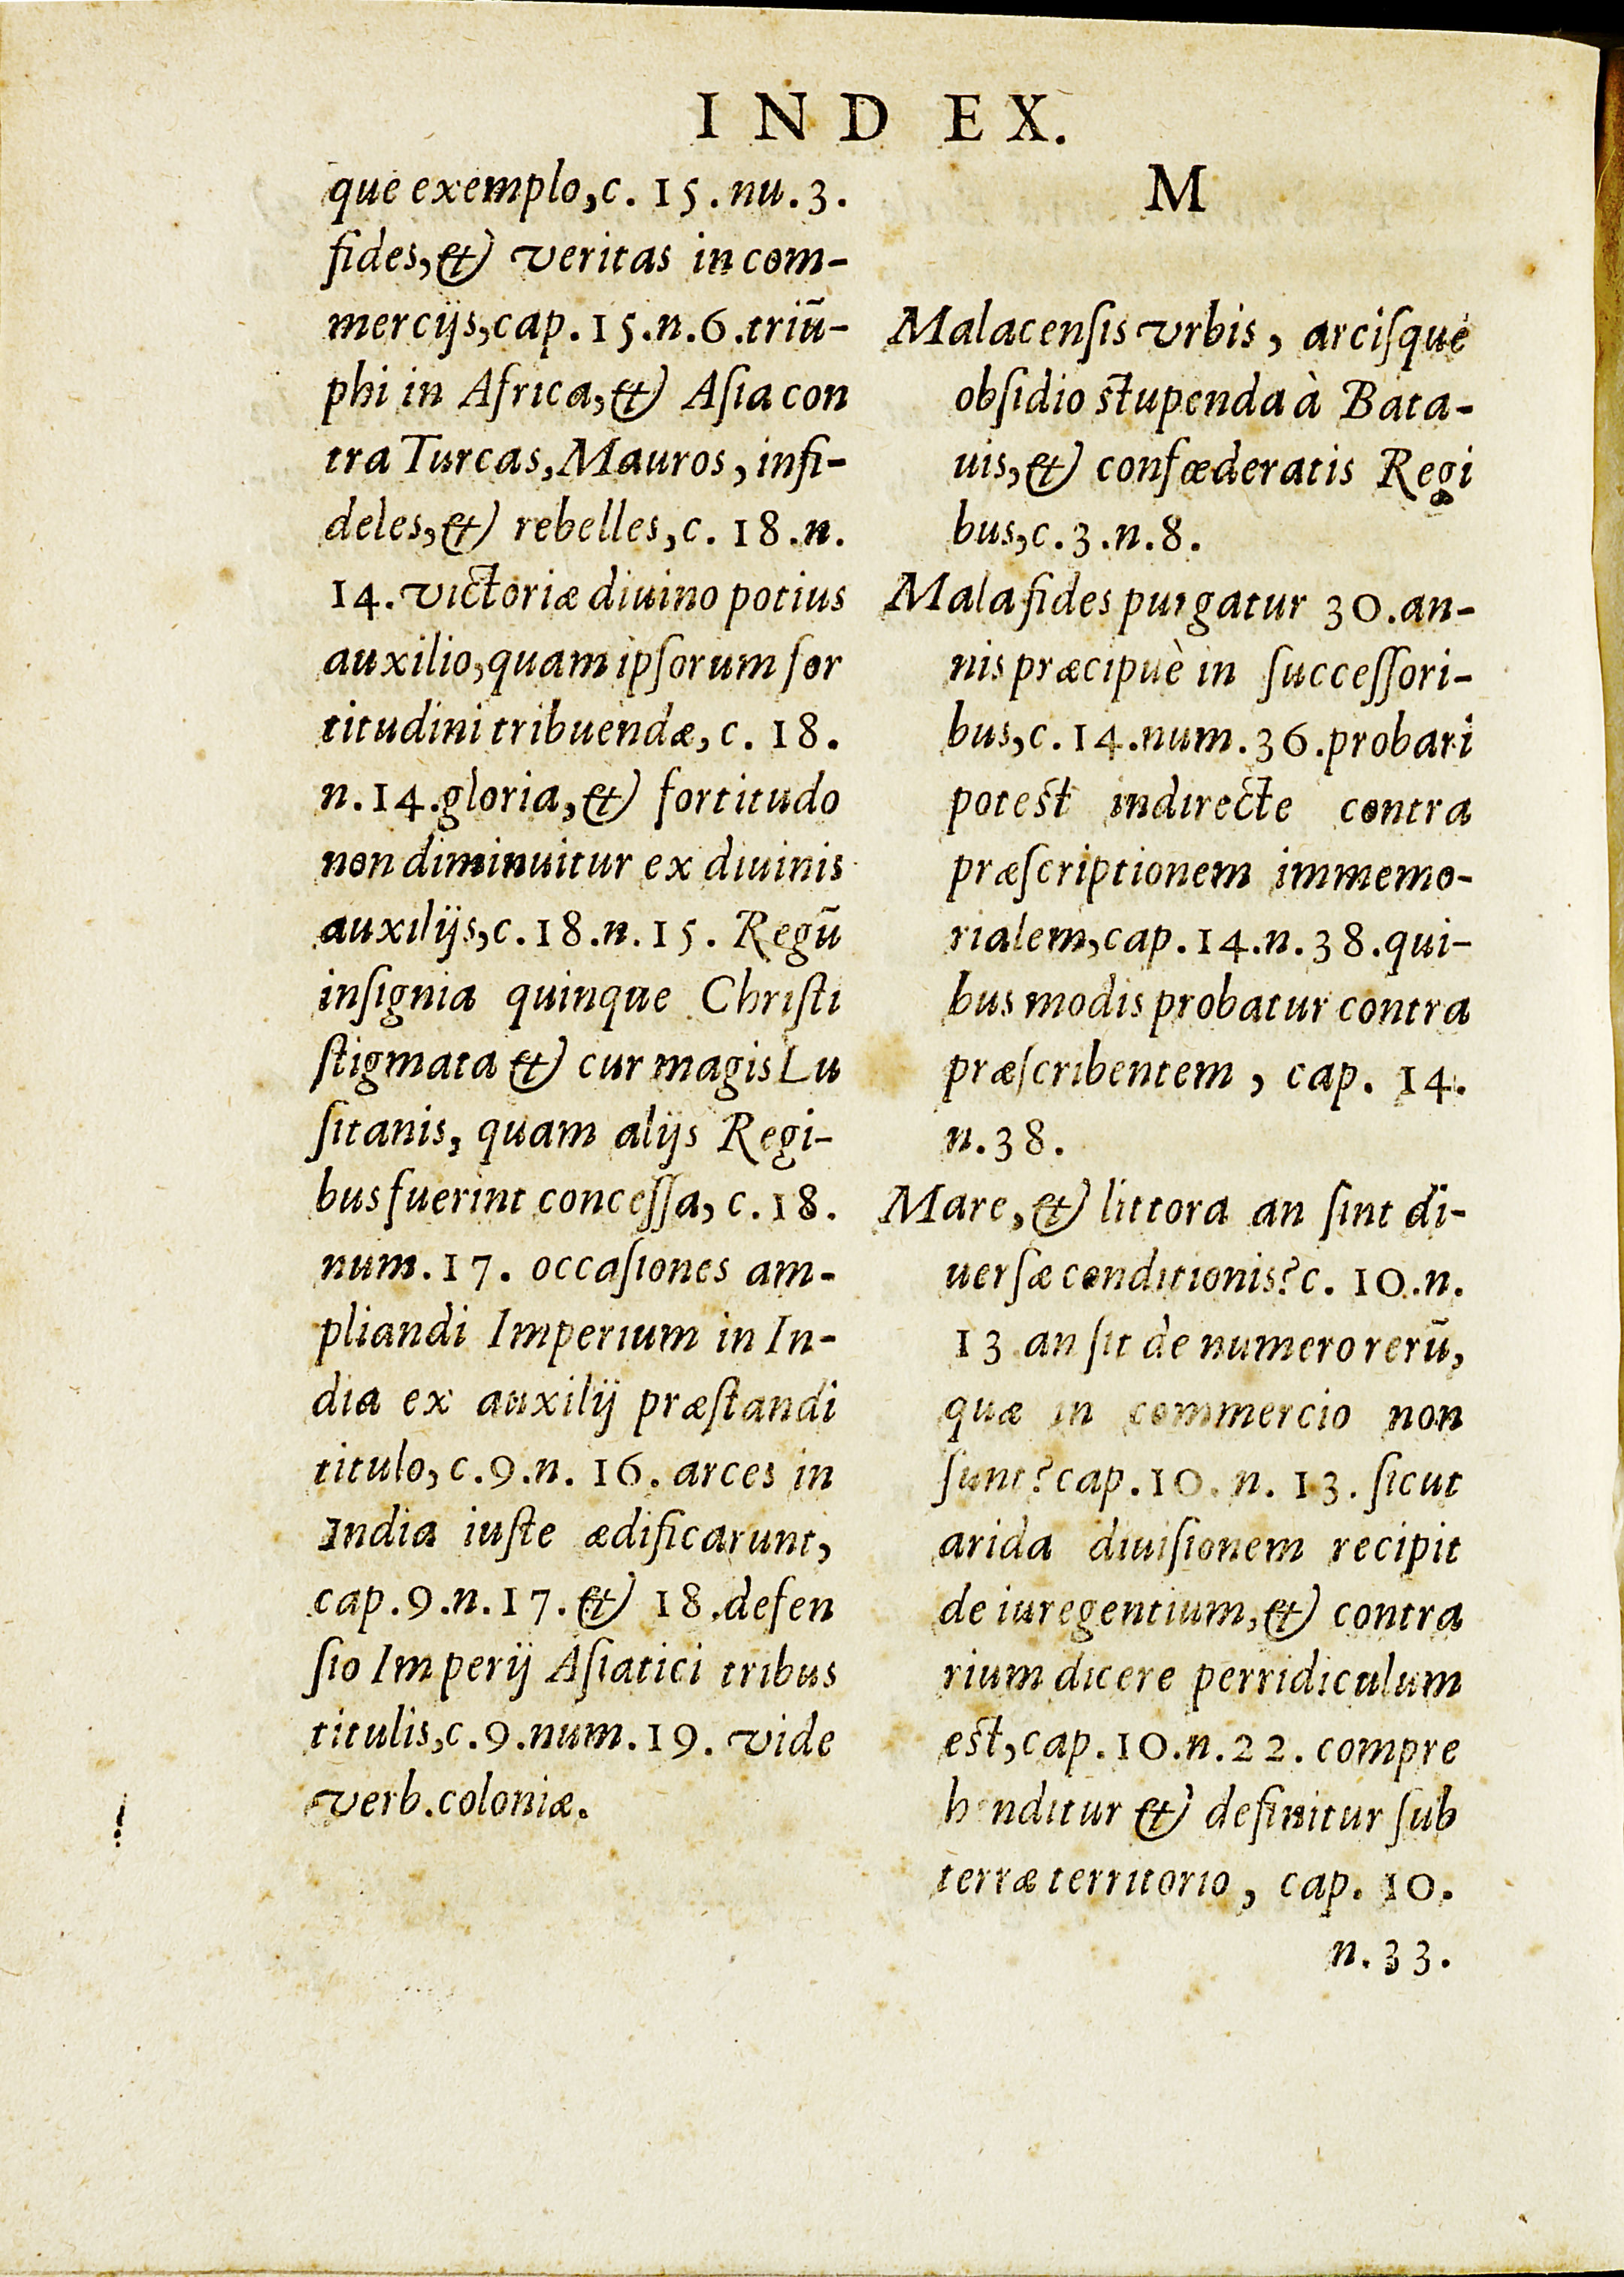 INDEX.
que exemplo, c. 15. nu. 3.
fides, & veritas in com-
mercijs, cap. 15. n. 6. triũ-
phi in Africa, & Aſia con
tra Turcas, Mauros, infi-
deles, & rebelles, c. 18. n.
14. victoriæ diuino potius
auxilio, quam ipſorum for
titudini tribuendæ, c. 18.
n. 14. gloria, & fortitudo
non diminuitur ex diuinis
auxilijs, c. 18. n. 15. Regũ
inſignia quinque Chriſti
ſtigmata & cur magis Lu
ſitanis, quam alijs Regi-
bus fuerint conceſſa, c. 18.
num. 17. occaſiones am-
pliandi Imperium in In-
dia ex auxilij præſtandi
titulo, c. 9. n. 16. arces in
India iuſte ædificarunt,
cap. 9. n. 17. & 18. defen
ſio Imperij Aſiatici tribus
titulis, c. 9. num. 19. vide
verb. coloniæ.
M
Malacenſis vrbis, arciſque
obſidio ſtupenda à Bata-
uis, & confœderatis Regi
bus, c. 3. n. 8.
Mala fides purgatur 30. an-
nis præcipuè in ſucceſſori-
bus, c. 14. num. 36. probari
poteſt indirecte contra
præſcriptionem immemo-
rialem, cap. 14. n. 38. qui-
bus modis probatur contra
præſcribentem, cap. 14.
n. 38.
Mare, & littora an ſint di-
uerſæ conditionis? c. 10. n.
13 an ſit de numero rerũ,
quæ in commercio non
ſunt? cap. 10. n. 13. ſicut
arida diuiſionem recipit
de iure gentium, & contra
rium dicere perridiculum
eſt, cap. 10. n. 22. compre
h nditur & definitur ſub
terræ territorio, cap. 10.
n. 33.